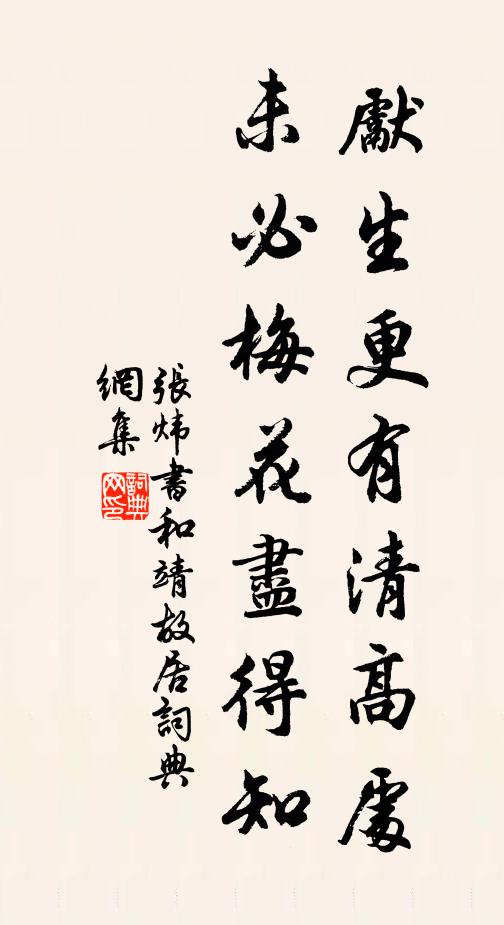 獻生更有清高處
未必梅花盡得知
張煒書和靖故居詞典
網集
詞典網印